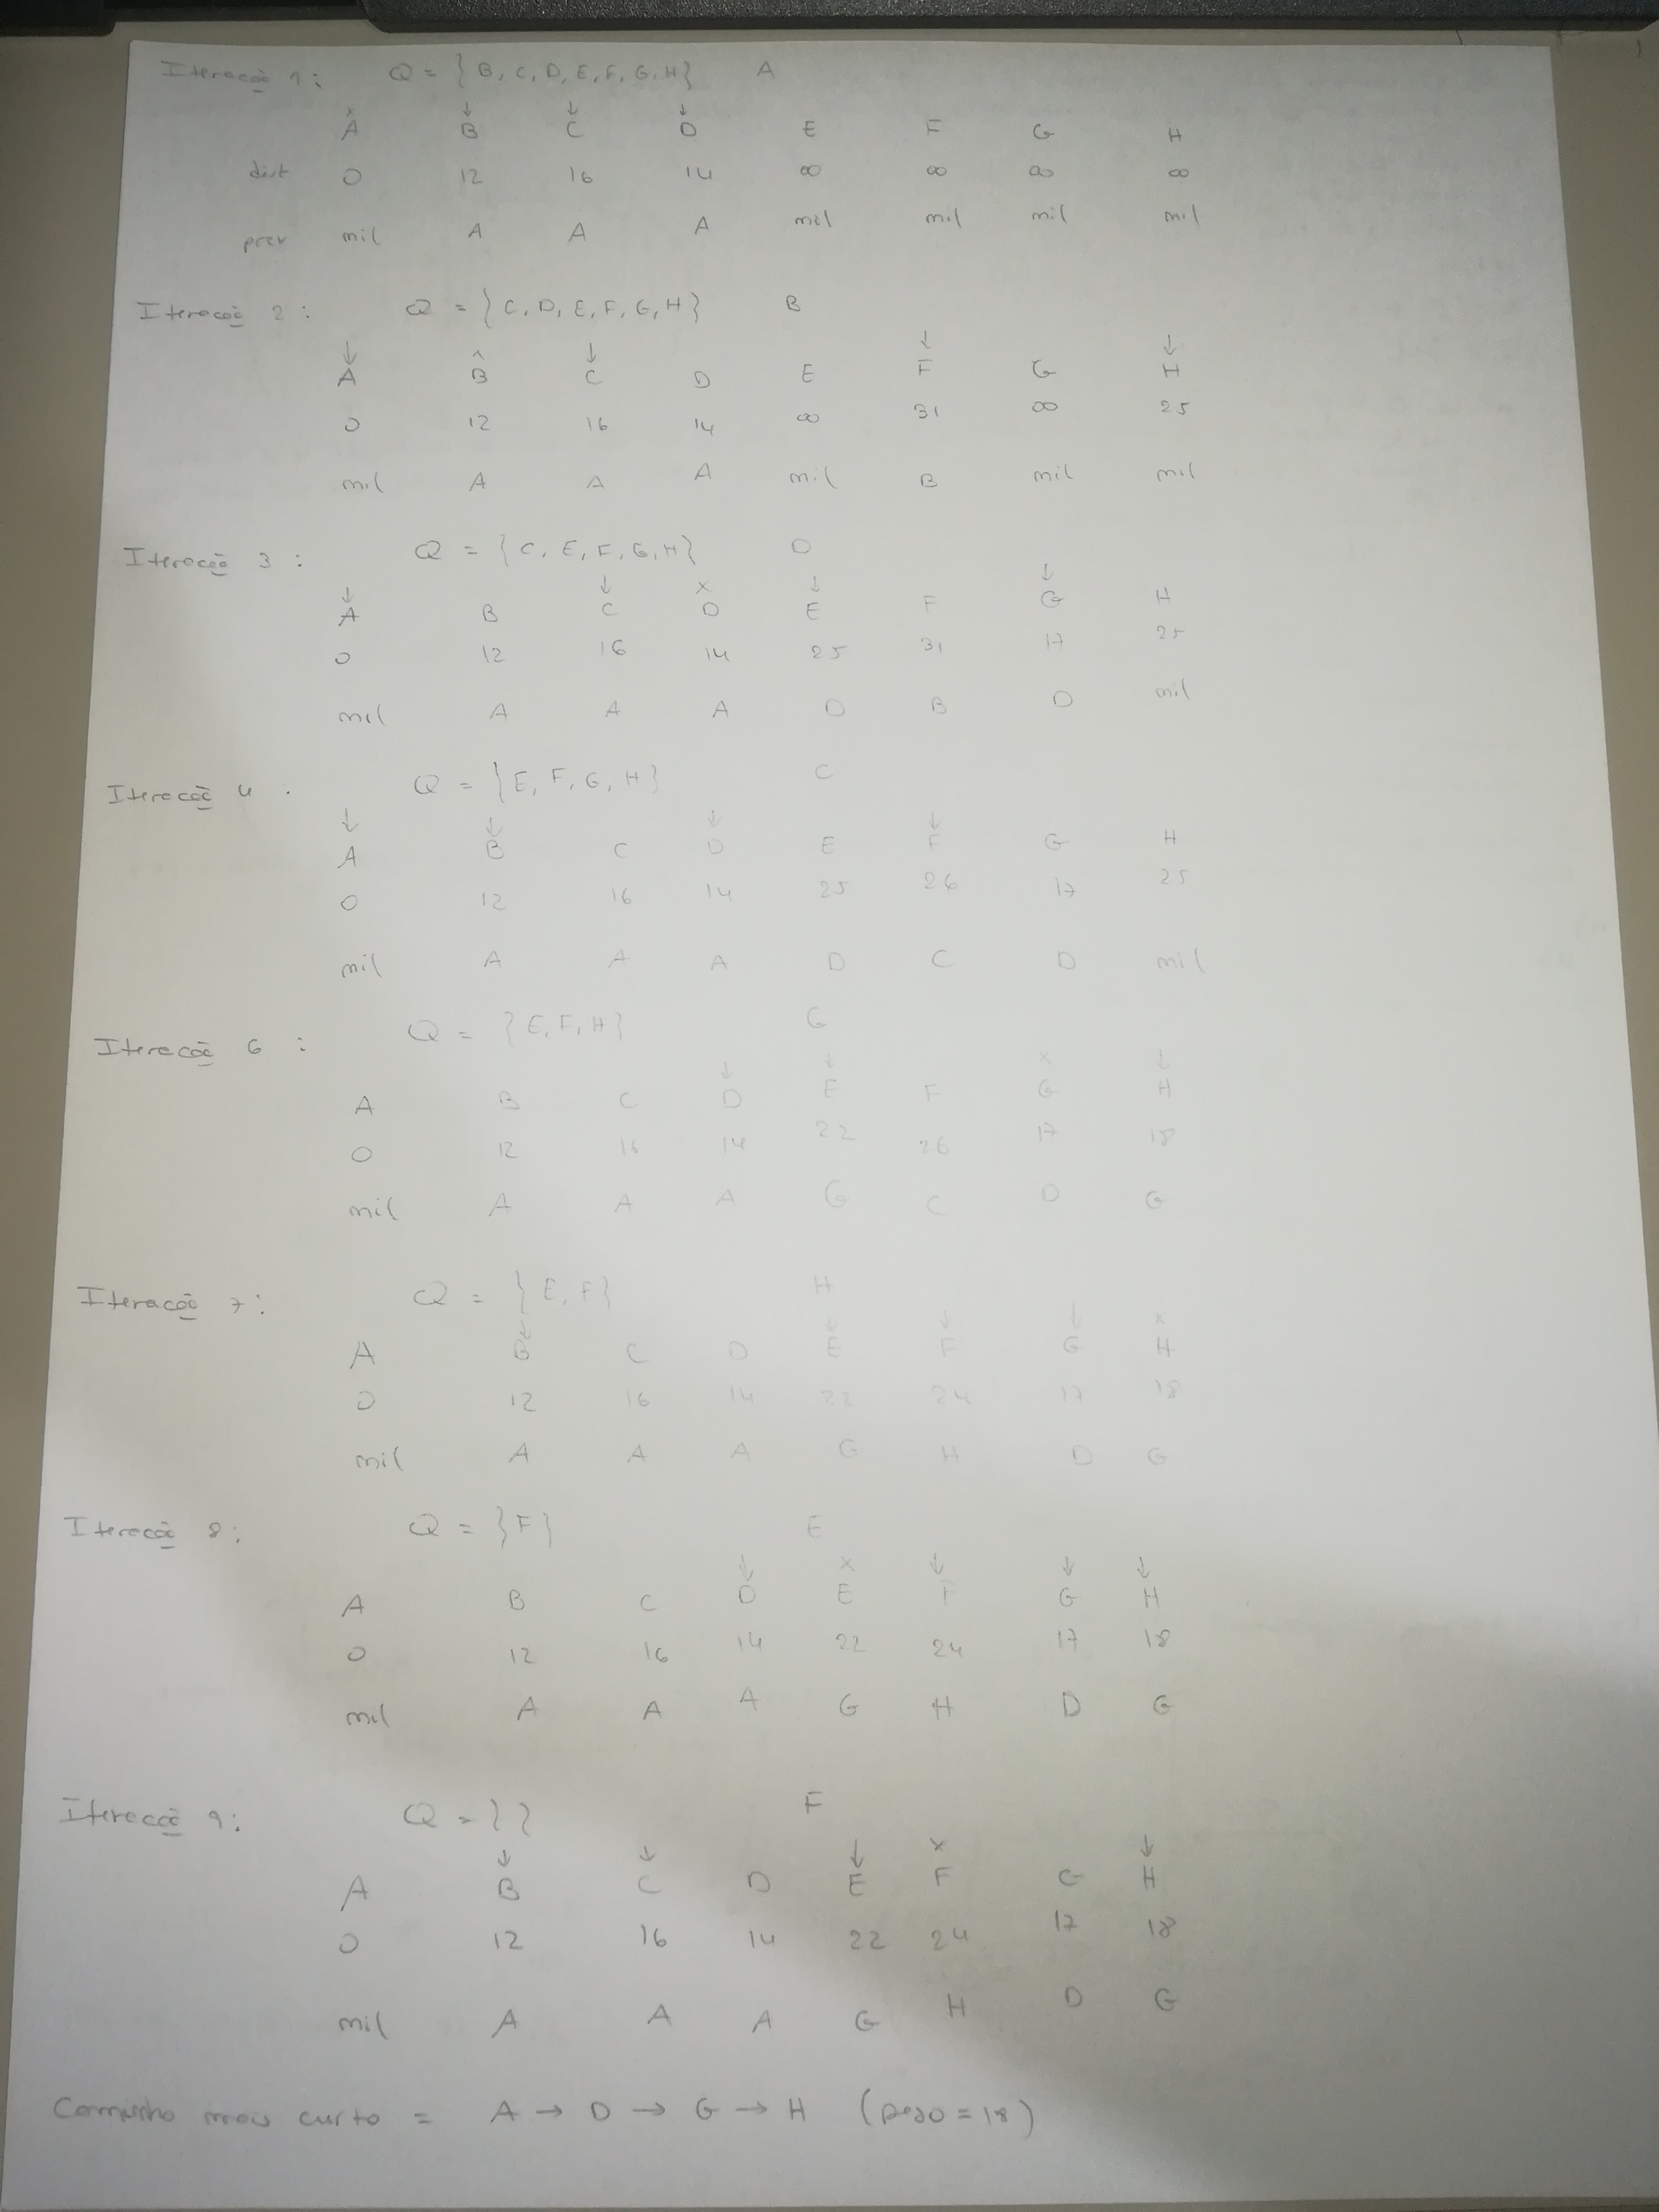 Iteração 1: Q = { B, C, D, E, F, G, H } A
x ↓ ↓ ↓
A B C D E F G H
dist 0 12 16 14 ∞ ∞ ∞ ∞
prev nil A A A nil nil nil nil
Iteração 2: Q = { C, D, E, F, G, H } B
↓ x ↓ ↓ ↓
A B C D E F G H
0 12 16 14 ∞ 31 ∞ 25
nil A A A nil B nil nil
Iteração 3: Q = { C, E, F, G, H } D
↓ ↓ x ↓ ↓
A B C D E F G H
0 12 16 14 25 31 17 25
nil A A A D B D nil
Iteração 4: Q = { E, F, G, H } C
↓ ↓ ↓ ↓
A B C D E F G H
0 12 16 14 25 26 17 25
nil A A A D C D nil
Iteração 6: Q = { E, F, H } G
↓ ↓ x ↓
A B C D E F G H
0 12 16 14 22 26 17 18
nil A A A G C D G
Iteração 7: Q = { E, F } H
↓ ↓ ↓ ↓ x
A B C D E F G H
0 12 16 14 22 24 17 18
nil A A A G H D G
Iteração 8: Q = { F } E
↓ x ↓ ↓ ↓
A B C D E F G H
0 12 16 14 22 24 17 18
nil A A A G H D G
Iteração 9: Q = { } F
↓ ↓ ↓ x ↓
A B C D E F G H
0 12 16 14 22 24 17 18
nil A A A G H D G
Caminho mais curto = A → D → G → H (peso = 18)